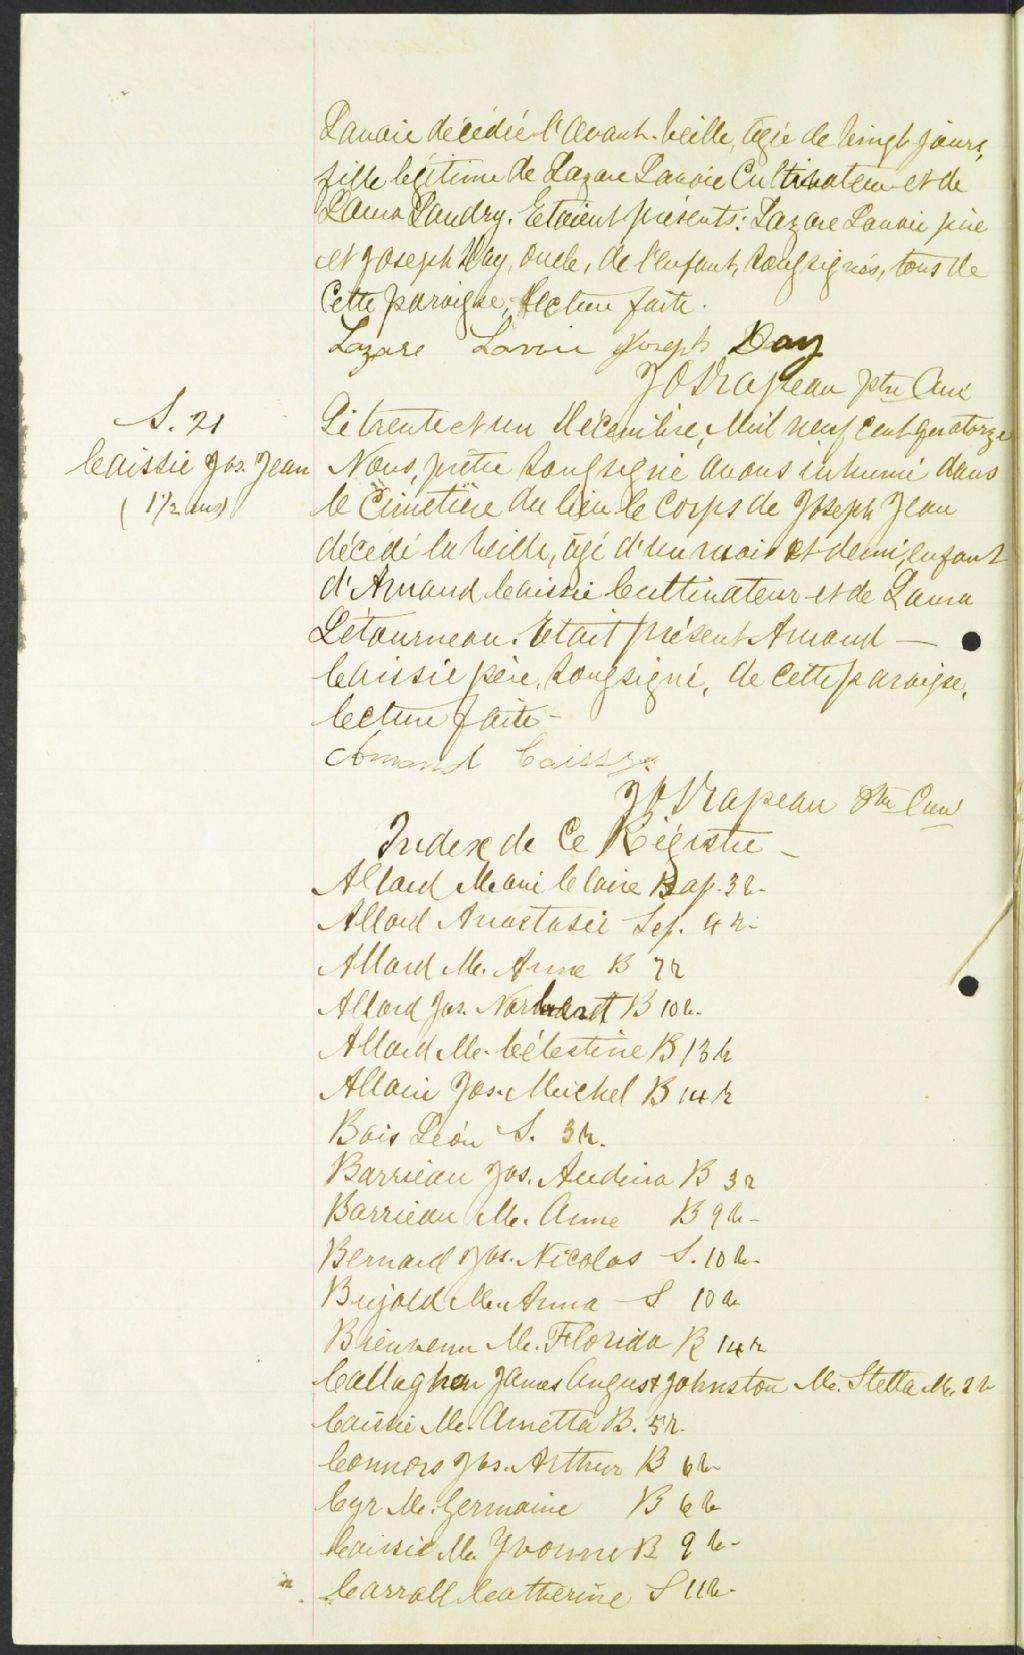 Lavoie décédée l'avant-veille, âgée de vingt jours,
fille légitime de Lazare Lavoie Cultivateur et de
Laura Landry. Etaient présents: Lazare Lavoie père
et Joseph Day, oncle, de l'enfant, soussignés, tous de
Cette paroisse, lecture faite.
Lazare Lavoie Joseph Day
J O Drapeau ptre Curé
S. 21
Caissie Jos. Jean
(1½ ms)
Le trente et un Décembre, Mil neuf cent quatorze
Nous, prêtre soussigné avons inhumé dans
le Cimetière du lieu le corps de Joseph Jean
décédé la veille, âgé d'un mois et demi, enfant
d'Amand Caissie Cultivateur et de Laura
Létourneau. Etait présent Amand —
Caissie père, soussigné, de cette paroisse,
lecture faite -
Amand Caissy
J O Drapeau Ptre Curé
Index de Ce Régistre -
Allard Marie Claire Bap. 3 r.
Allard Anastasie Sep. 4 r.
Allard M. Anne B 7 r
Allard Jos. B 10 r.
Allard M. Célestine B 13 r
Allain Jos. Michel B 14 r
Bois Léon S. 3 r.
Barrieau Jos. B 3 r
Barrieau M. Anne B 9 r -
Bernard Jos. Nicolas S. 10 r.
Bujold M. Anna S 10 r
Bienvenu M. Florida B 14 r
Callaghan James August Johnston M. Stella M. 2 r
Caissie M. Ametta B. 5 r.
Connors Jos. Arthur B 6 r
Cyr M. Germaine B 6 r
Caissie M. Yvonne B 9 r -
Carroll Catherine S 11 r -